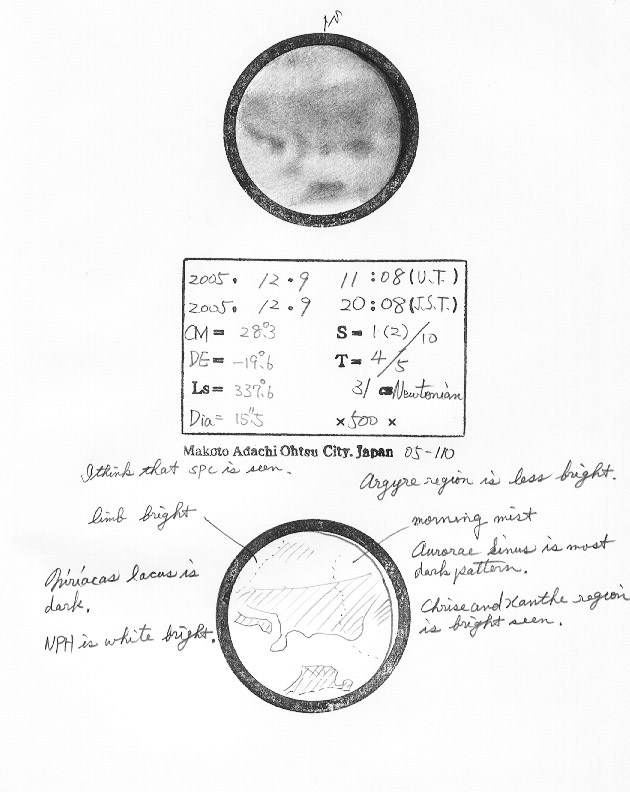 2005. 12.9 11:08 (U.T.)
2005. 12.9 20:08 (J.S.T.)
CM= 28.°3 S= 1(2)/10
DE= -19.°6 T= 4/5
Ls= 337.°6 31 cm Newtonian
Dia= 15."5 ×500 ×
Makoto Adachi Ohtsu City. Japan 05-110
I think that spc is seen.
Argyre region is less bright.
limb bright
morning mist
Aurorae Sinus is most
dark pattern.
Niriacas lacus is
dark.
Chrise and Xanthe region
is bright seen.
NPH is white bright.